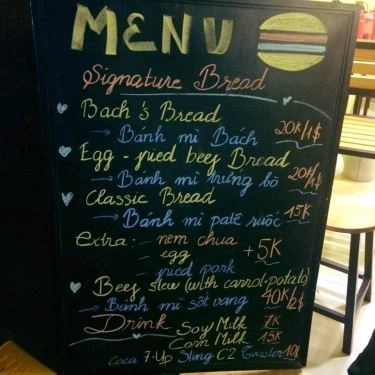 MENU
Signature Bread
Bach's Bread
→ Bánh mì Bách 20K/1$
Egg - fried beef Bread
→ Bánh mì trứng bò 20K/1$
Classic Bread
→ Bánh mì patê ruốc 15K
Extra: - nem chua
- egg +5K
fried pork
Beef stew (with carrot+potato)
→ Bánh mì sốt vang 40K/2$
Drink Soy Milk 7K
Corn Milk 15K
Coca 7-Up Sting C2 Twister 10K